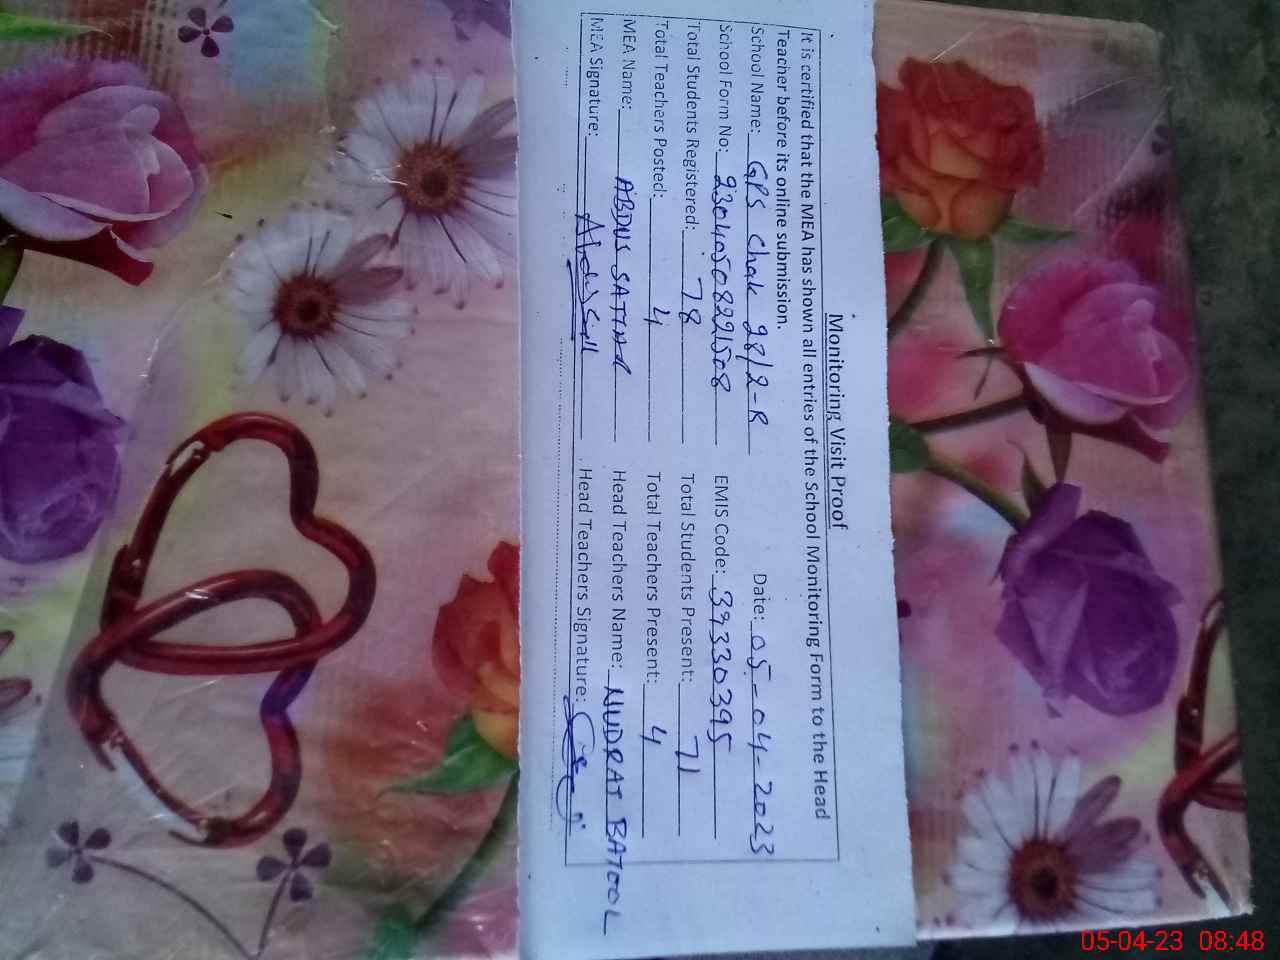 Monitoring Visit Proof
It is certified that the MEA has shown all entries of the School Monitoring Form to the Head
Teacher before its online submission.
School Name: GPS Chak 28/2-R Date: 05-04-2023
School Form No: 2304050822508 EMIS Code: 39330395
Total Students Registered: 78 Total Students Present: 71
Total Teachers Posted: 4 Total Teachers Present: 4
MEA Name: ABDUS SATTAR Head Teachers Name: NUDRAT BATOOL
MEA Signature: Head Teachers Signature:
05-04-23 08:48